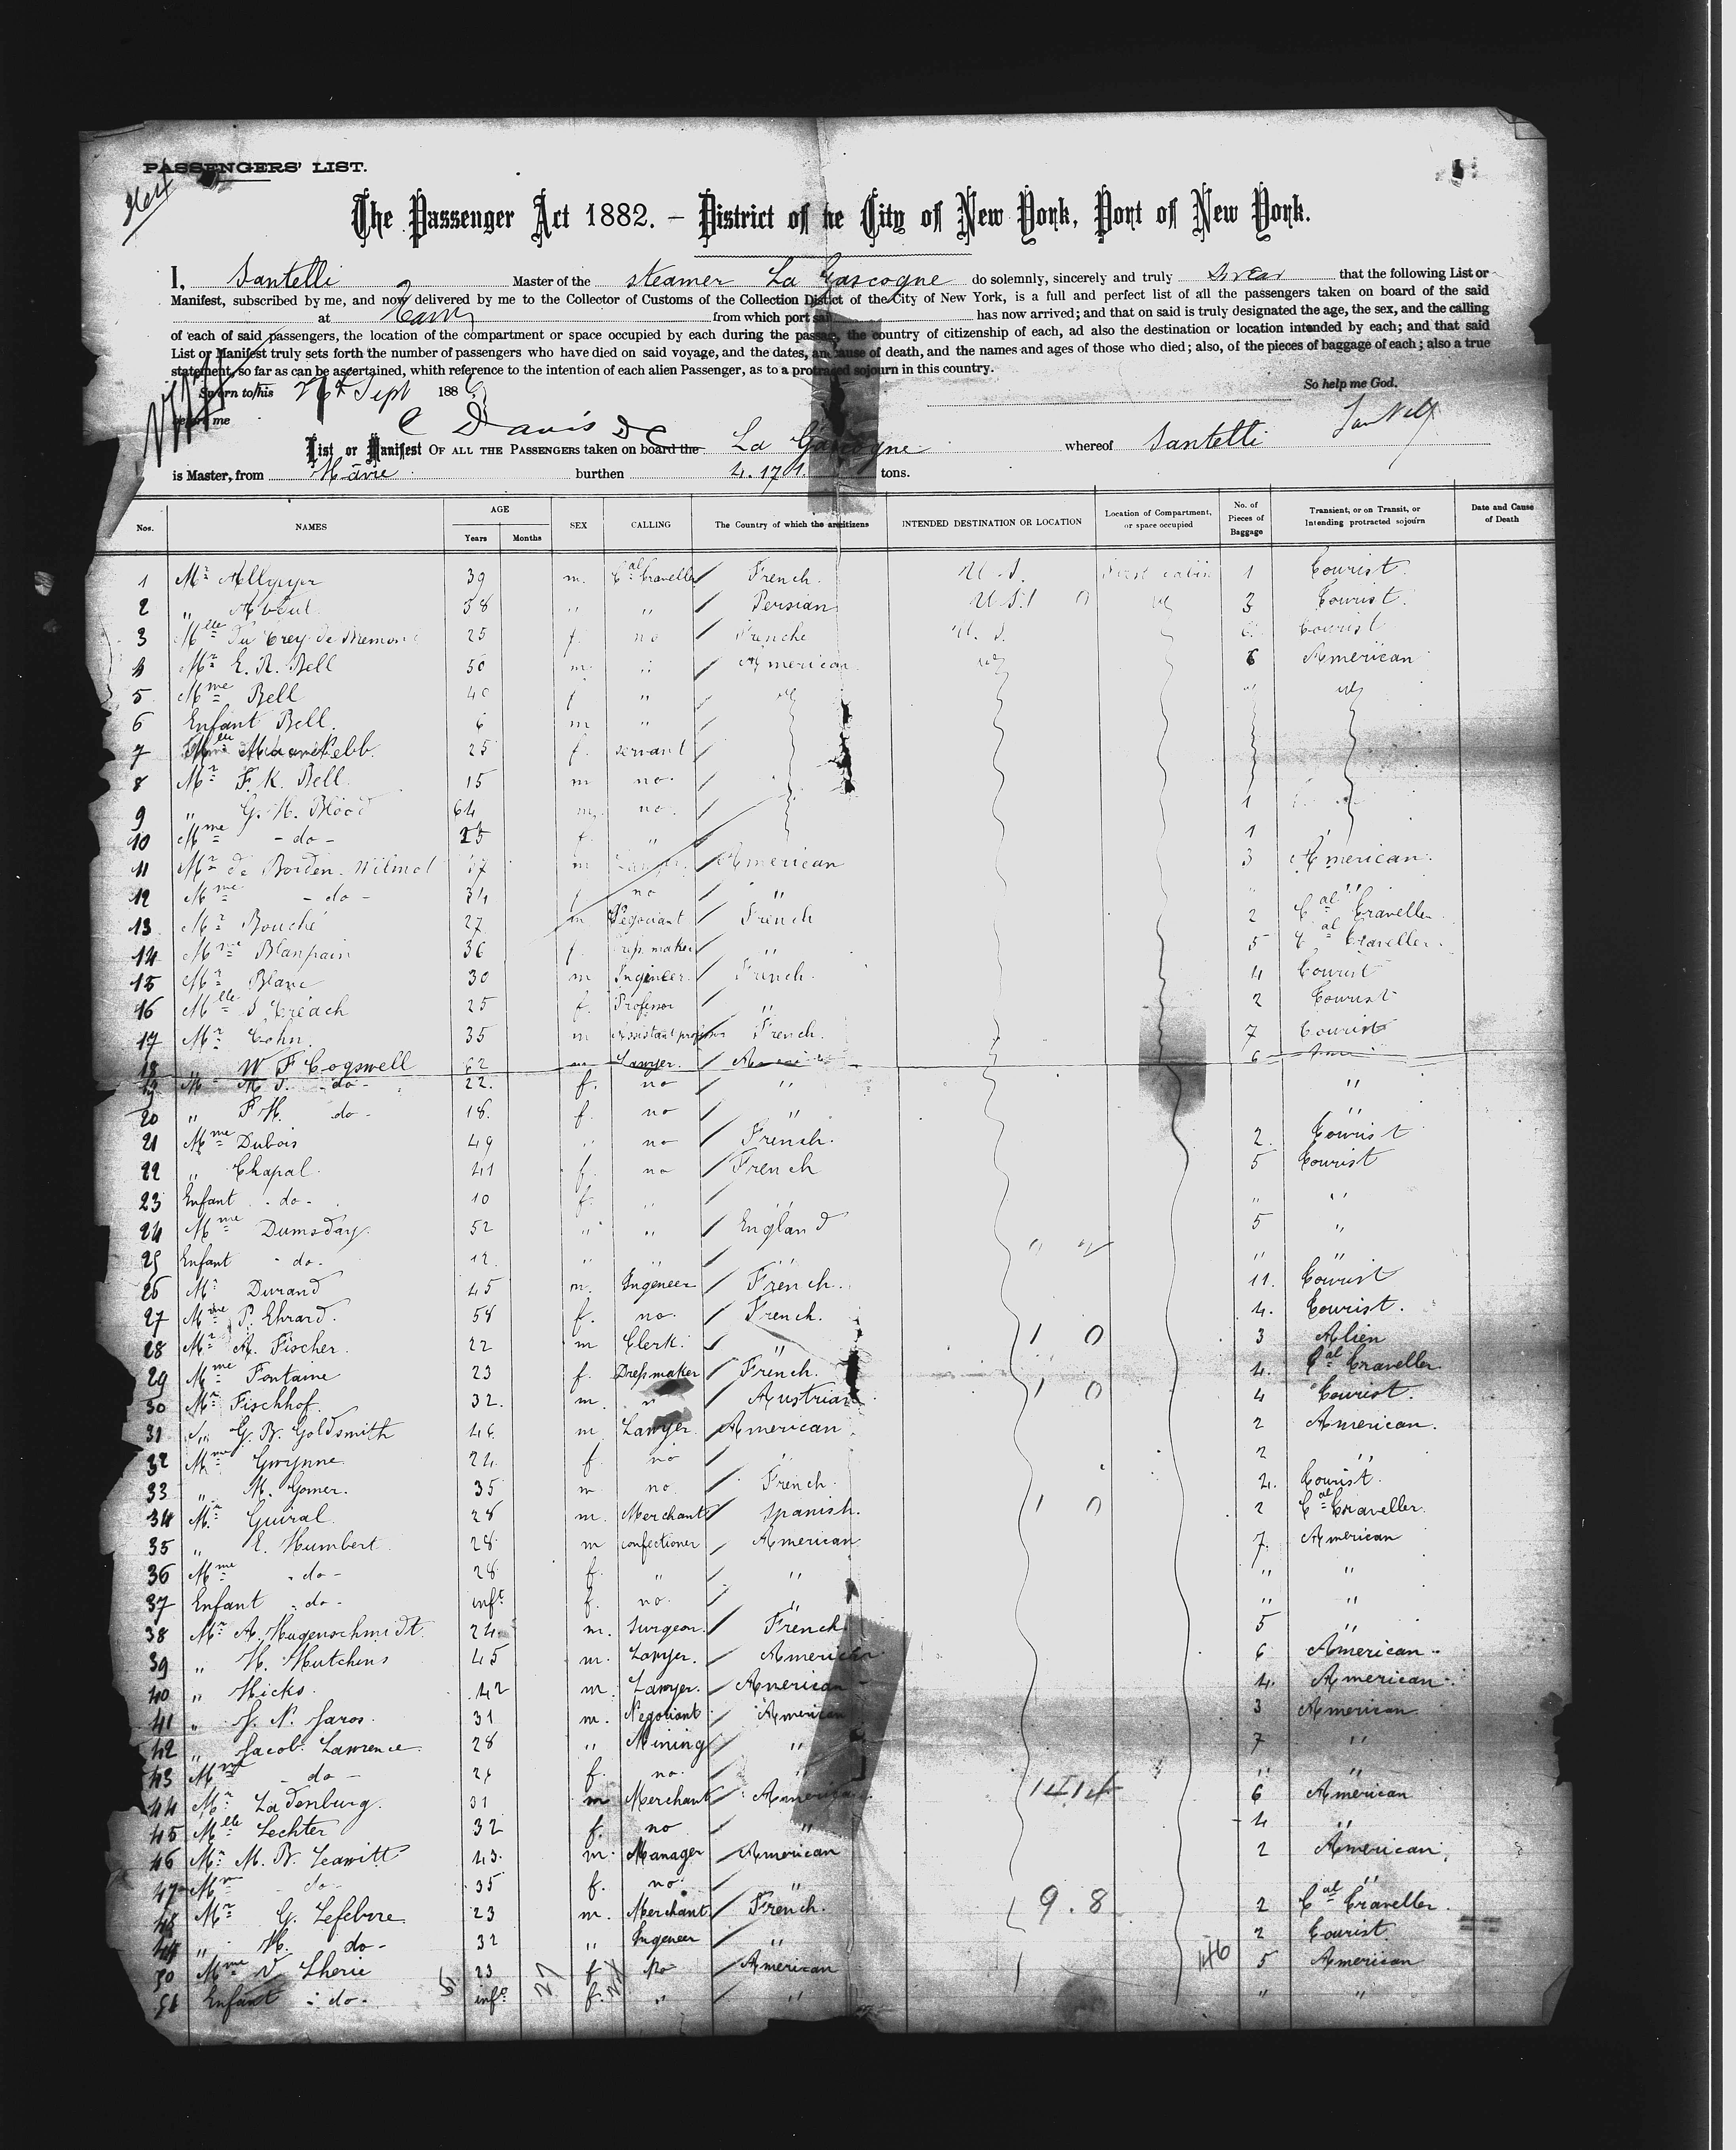 PASSENGERS' LIST.
The Passenger Act 1882. – District of he City of New York, Port of New York.
I, Santelli Master of the steamer La Gascogne do solemnly, sincerely and truly swear that the following List or
Manifest, subscribed by me, and now delivered by me to the Collector of Customs of the Collection District of the City of New York, is a full and perfect list of all the passengers taken on board of the said
at from which port sai has now arrived; and that on said is truly designated the age, the sex, and the calling
of each of said passengers, the location of the compartment or space occupied by each during the passage, the country of citizenship of each, ad also the destination or location intended by each; and that said
List or Manifest truly sets forth the number of passengers who have died on said voyage, and the dates, and cause of death, and the names and ages of those who died; also, of the pieces of baggage of each; also a true
statement, so far as can be ascertained, whith reference to the intention of each alien Passenger, as to a protraced sojourn in this country.
Sworn to this Sept 1886 So help me God.
before me
C Davis D C
List or Manifest OF ALL THE PASSENGERS taken on board the La Gascogne whereof Santelli
is Master, from Hâvre burthen 4.171. tons.
Nos. NAMES AGE Years Months SEX CALLING The Country of which the are citizens INTENDED DESTINATION OR LOCATION Location of Compartment, or space occupied No. of Pieces of Baggage Transient, or on Transit, or Intending protracted sojourn Date and Cause of Death
1 Mr 39 m. Cal Traveller / French. U.S. First cabin 1 Tourist.
2 „ 38 „ „ / Persian U.S. 3 Tourist.
3 Mlle 25 f. no Frenche U.S. Tourist
4 Mr E. R. Bell 50 m. „ / American 6 American
5 Mme Bell 40 f „ /
6 Enfant Bell. 6 m „ /
7 25 f. servant /
8 Mr F. K. Bell 15 m no. /
9 „ G. H. Blood 64 m, no. / 1
10 Mme - do - 25 f. „ / 1
11 Mr de Borden. Wilmot m / American 3 American.
12 Mme - do - 34 f no / " "
13 Mr Bouché 27 m Negociant / French 2 Cal Traveller
14 Mme Blanpain 36 f. Dressmaker / " 5 Cal Traveller.
15 Mr Blanc 30 m Ingineer. / French. 4 Tourist
16 Mlle 25 f. Professor " 2 Tourist
17 Mr Cohn. 35 m Assistant professor French. 7 Tourist
18 „ W F Cogswell 62 m Lawyer. / 6
19 do- 22. f. no / " "
20 „ do - 18. f. no / " "
21 Mme Dubois 49 „ no / French. 2. Tourist
22 „ Chapal. 41 f. no / French 5 Tourist
23 Enfant - do - 10 f. „ / " „ "
24 Mme Dumsday. 52 „ „ / England 5 „
25 Enfant - do - 12. „ „ / " " "
26 Mr Durand 45 m. Ingeneer / French. 11. Tourist
27 Mme P. Ehrard. 58 f. no. / French. 4. Tourist.
28 Mr A. Fischer. 22 m Clerk. / " 1 0 3 Alien
29 Mme Fontaine 23 f. Dressmaker / French. 4. Cal Traveller.
30 Mr Fischhof. 32. m. „ / Austrian 1 0 4 Tourist.
31 „ G. B. Goldsmith 46 m Lawyer. / American. 2 American.
32 Mme Gwynne. 24. f. no / " 2 "
33 „ M. Gomer. 35 m no. / French. 2. Tourist.
34 Mr Guiral. 28 m. Merchant / Spanish. 1 0 2 Cal Traveller.
35 „ E. Humbert 28 m confectioner / American 7. American
36 Mme - do - 28 f. „ / " " "
37 Enfant - do - inft f. no. / " " "
38 Mr A. Hagenschmidt. 24 m. Surgeon. / French 5 "
39 „ H. Hutchens 45 m. Lawyer. / American 6 American.
40 „ Hicks. 42 m. Lawyer. / American 4. American.
41 „ J. N. Jaros. 31 m. Negotiant / American 3 American
42 „ Jacob. Lawrence. 28 „ Mining / " 7 "
43 Mme - do - f. no. / " " "
44 Mr Ladenburg. 31 m Merchant American 1414 6 American
45 Mlle Lechter 32 f. no / " 4 "
46 Mr M. B. Leavitt 43. m. Manager / American 2 American.
47 Mme do - 35 f. no. / " "
48 Mr G. Lefebvre 23 m. Merchant / French. 9.8 2 Cal Traveller.
49 „ H. do - 32 „ Ingeneer / " 2 Tourist
50 Mme V. Lherie 23 f no / American 146 5 American
51 Enfant - do - inft f. „ / " " "